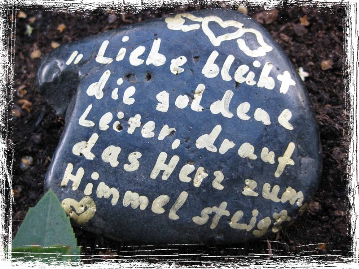 "Liebe bleibt
die goldene
Leiter, drauf
das Herz zum
Himmel steigt